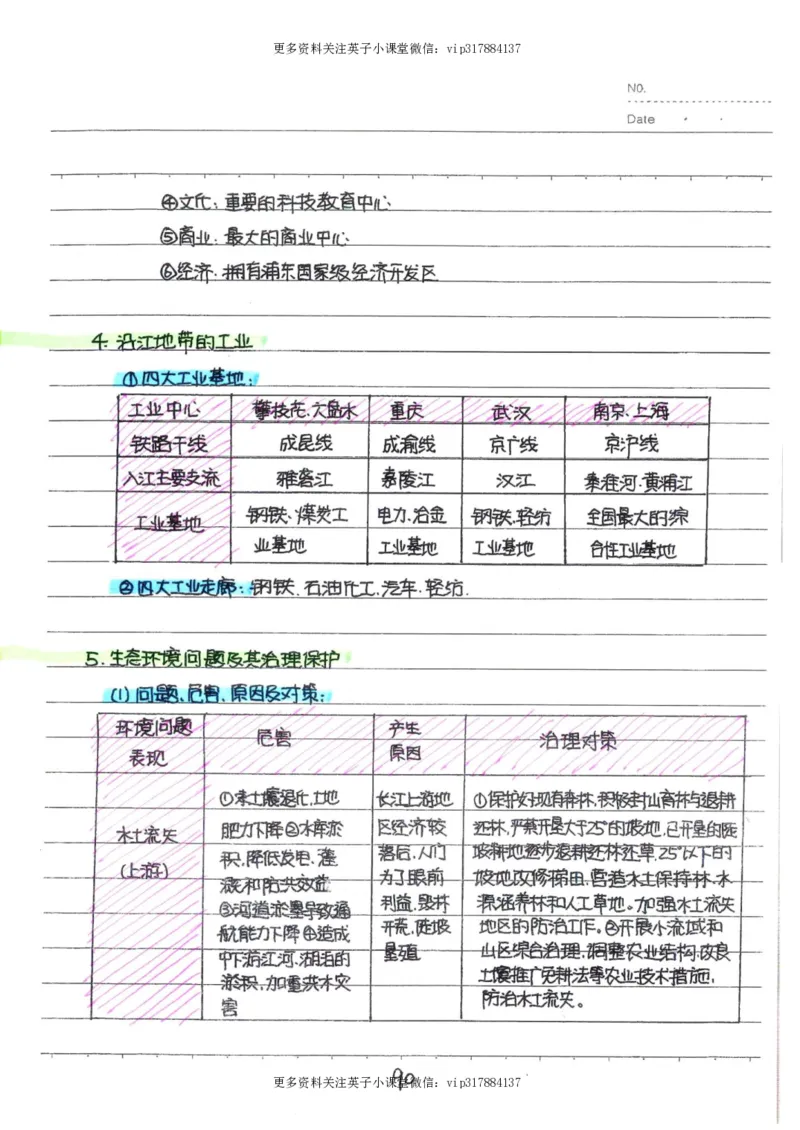 更多资料关注英子小课堂微信：vip317884137
NO.
Date
④文化：重要的科技教育中心
⑤商业：最大的商业中心
⑥经济：拥有浦东国家级经济开发区
4. 沿江地带的工业
①四大工业基地：
工业中心 攀技花、六盘水 重庆 武汉 南京、上海
铁路干线 成昆线 成渝线 京广线 京沪线
入江主要支流 雅砻江 嘉陵江 汉江 秦淮河、黄浦江
工业基地 钢铁、煤炭工 电力、冶金 钢铁、轻纺 全国最大的综
业基地 工业基地 工业基地 合性工业基地
②四大工业走廊：钢铁、石油化工、汽车、轻纺.
5. 生态环境问题及其治理保护
(1) 问题、危害、原因及对策：
环境问题
表现
危害
产生
原因
治理对策
水土流失
(上游)
①土壤退化,土地
肥力下降②水库淤
积,降低发电、灌
溉和防洪效益
③河道淤塞导致通
航能力下降④造成
中下游江河、湖泊的
淤积,加重洪水灾
害
长江上游地
区经济较
落后,人们
为了眼前
利益,毁林
开荒,陡坡
垦殖
①保护好现有森林,积极封山育林与退耕
还林,严禁开垦大于25°的坡地,已开垦的陡
坡耕地逐步退耕还林还草,25°以下的
坡地改修梯田,营造水土保持林、水
源涵养林和人工草地。加强水土流失
地区的防治工作。②开展小流域和
山区综合治理,调整农业结构,改良
土壤推广免耕法等农业技术措施,
防治水土流失。
90
更多资料关注英子小课堂微信：vip317884137